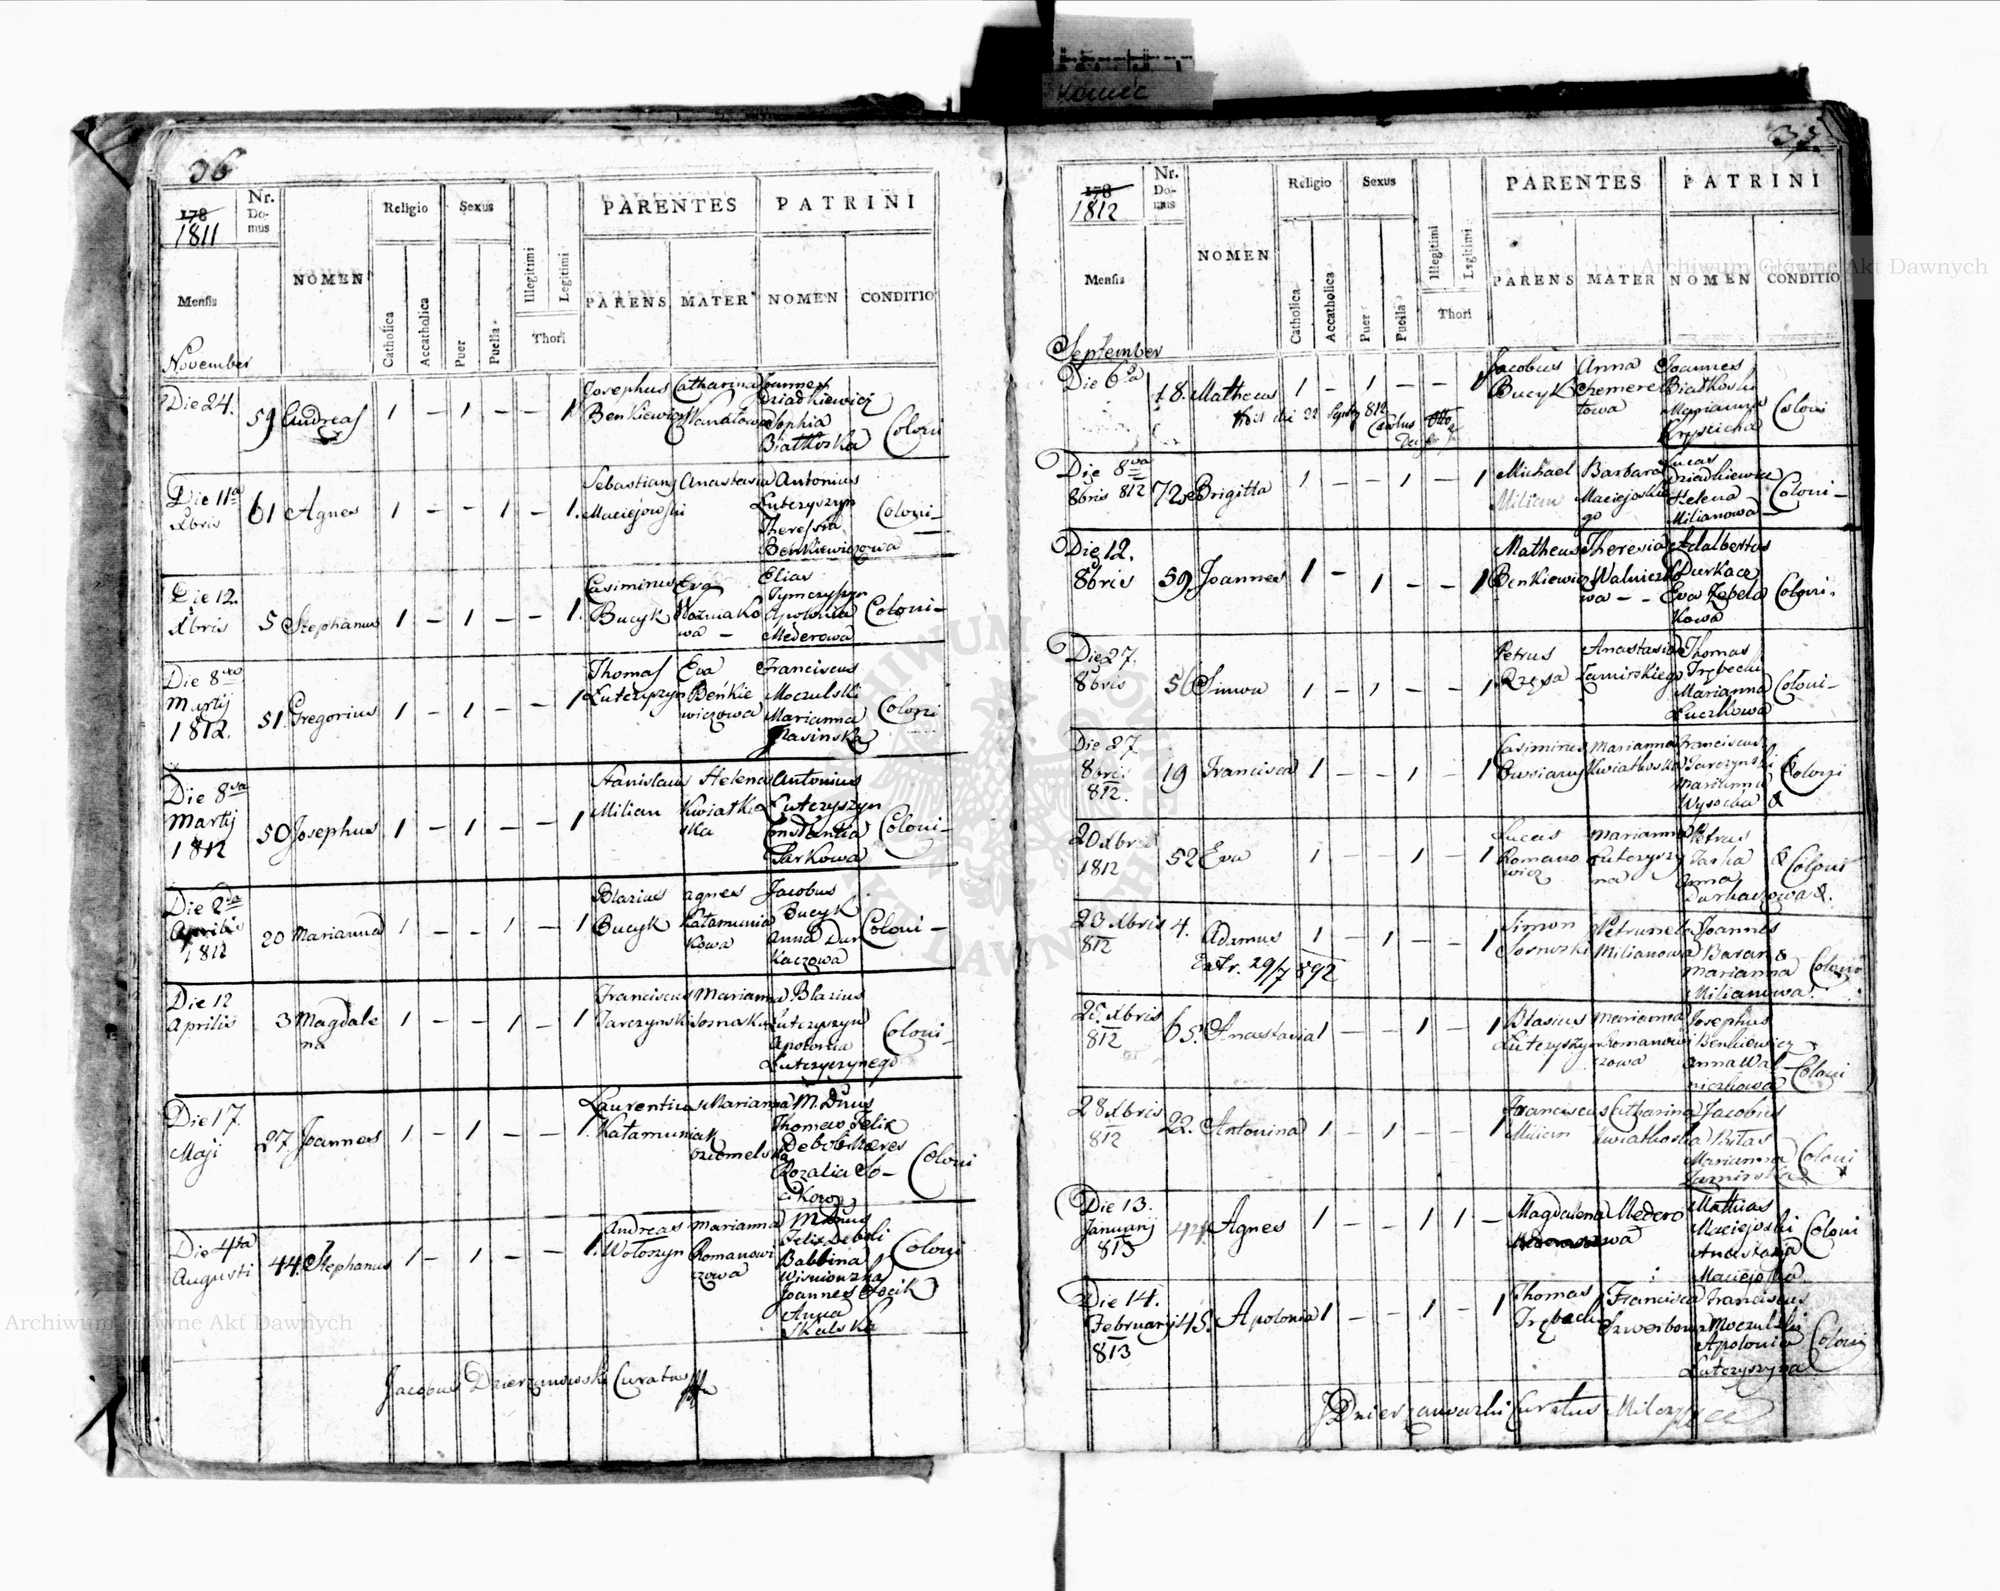 Koniec
36
178
1811
Nr. Domus
NOMEN
Religio
Sexus
PARENTES
PATRINI
Mensis
Catholica
Accatholica
Puer
Puella
Illegitimi
Legitimi
Thori
PARENS
MATER
NOMEN
CONDITIO
November
Die 24. 59 Andreas 1 – 1 – – 1 Josephus Benkiewicz Catharina Joannes Dziadkiewicz Sophia Białkoska Coloni
Die 11a Xbris 61 Agnes 1 – – 1 – 1. Sebastiany Maciejowski Anastasia Antonius Luteryszyn Theressia Benkiewiczowa Coloni –
Die 12. Xbris 5 Stephanus 1 – 1 – – 1. Casimirus Bucyk Eva Woźniakowa – Elias Tymczyszyn Apolonia Mederowa Coloni –
Die 8va Martij 1812. 51. Gregorius 1 – 1 – – 1 Thomas Luteryszyn Eva Beńkiewiczowa Franciscus Moczulski Marianna Coloni
Die 8va Martij 1812 50 Josephus 1 – 1 – – 1 Stanislaus Milian Helena Kwiatkoska Antonius Luteryszyn Constantia Coloni –
Die 2da Aprilis 1812 20 Marianna 1 – – 1 – 1 Blazius Bucyk Agnes Katamuniakowa Jacobus Bucyk Anna Durkaczowa Coloni –
Die 12 Aprilis 3 Magdalena 1 – – 1 – 1 Franciscus Tarczynski Marianna Sosnoska Blazius Luteryszyn Apolonia Luteryszynego Coloni –
Die 17. Maji 27. Joannes 1 – 1 – – 1. Laurentius Katamuniak Marianna M. Dnus Thomas Felix Deboli Rozalia Coloni
Die 4ta Augusti 44. Stephanus 1 – 1 – – 1. Andreas Wołoszyn Marianna Romanowiczowa M. Dnus Felix Deboli Babbina Wisniowska Joannes Socik Anna Skulska Coloni
Jacobus Dzierzanowski Curatus
178
1812
Nr. Domus
NOMEN
Religio
Sexus
PARENTES
PATRINI
Mensis
Catholica
Accatholica
Puer
Puella
Illegitimi
Legitimi
Thori
PARENS
MATER
NOMEN
CONDITIO
September
Die 6ta 18. Matheus 1 – 1 – – 1 Jacobus Bucyk Anna Joannes Białkoski Marianna Coloni
Die 8va 8bris 812 72 Brigitta 1 – – 1 – 1 Michael Milian Barbara Maciejoskiego Lucas Dziadkiewicz Helena Milianowa Coloni –
Die 12. 8bris 59. Joannes 1 – 1 – – 1 Matheus Benkiewicz Theresia Walniczkowa – – Adalbertus Durkacz Eva Coloni.
Die 27. 8bris 56 Simon 1 – 1 – – 1 Petrus Rzęsa Anastasia Thomas Trębecki Marianna Luczkowa Coloni –
Die 27. 8bris 812. 19 Francisca 1 – – 1 – 1 Casimirus Marianna Kwiatkoska Franciscus Tarczynski Marianna Wysocka & Coloni
20 Xbris 1812 52 Eva 1 – – 1 – 1 Lucas Romanowicz Marianna Luteryszyna Petrus & Anna Durkaczowa &. Coloni
23 Xbris 812 4. Adamus 1 – 1 – – 1 Simon Petrunela Milianowa Joannes Baran & Marianna Milianowa. Coloni
Extr. 29/7 892
25 Xbris 812 65. Anastasia 1 – – 1 – 1 Blasius Luteryszyn Marianna Romanowiczowa Josephus Benkiewicz Anna Walniczkowa Coloni
28 Xbris 812 22. Antonina 1 – 1 – – 1 Franciscus Milian Catharina Kwiatkoska Jacobus Marianna Coloni
Die 13. Januarij 813 44 Agnes 1 – – 1 1 – Magdalena Mederowa Mathias Maciejoski Anastazia Maciejoska Coloni
Die 14. Februarij 813 45. Apolonia 1 – – 1 – 1 Thomas Trębecki Francisca Franciscus Moczulski Apolonia Luteryszyna Coloni
J Dzierzanowski Curatus
Archiwum Główne Akt Dawnych
Archiwum Główne Akt Dawnych
ARCHIWUM GŁÓWNE AKT DAWNYCH